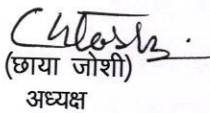 (छाया जोशी)
अध्यक्ष